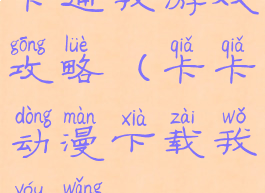 卡通找游戏
gōng lüè qiǎ qiǎ
攻略（卡卡
dòng màn xià zài wǒ
动漫下载我
yóu wǎng